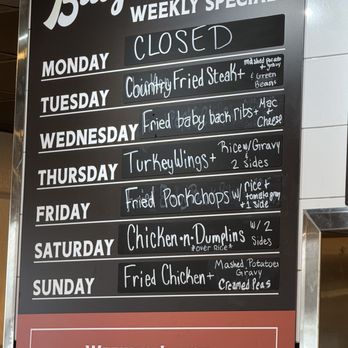 WEEKLY SPECIAL
MONDAY CLOSED
TUESDAY Country Fried Steak + Mashed Potato + gravy + Green Beans
WEDNESDAY Fried baby back ribs + Mac + Cheese
THURSDAY Turkey Wings + Rice w/ Gravy & 2 sides
FRIDAY Fried Porkchops w/ rice + tomato gravy + 1 side
SATURDAY Chicken-n-Dumplins w/ 2 Sides
*over Rice*
SUNDAY Fried Chicken + Mashed Potatoes Gravy Creamed Peas